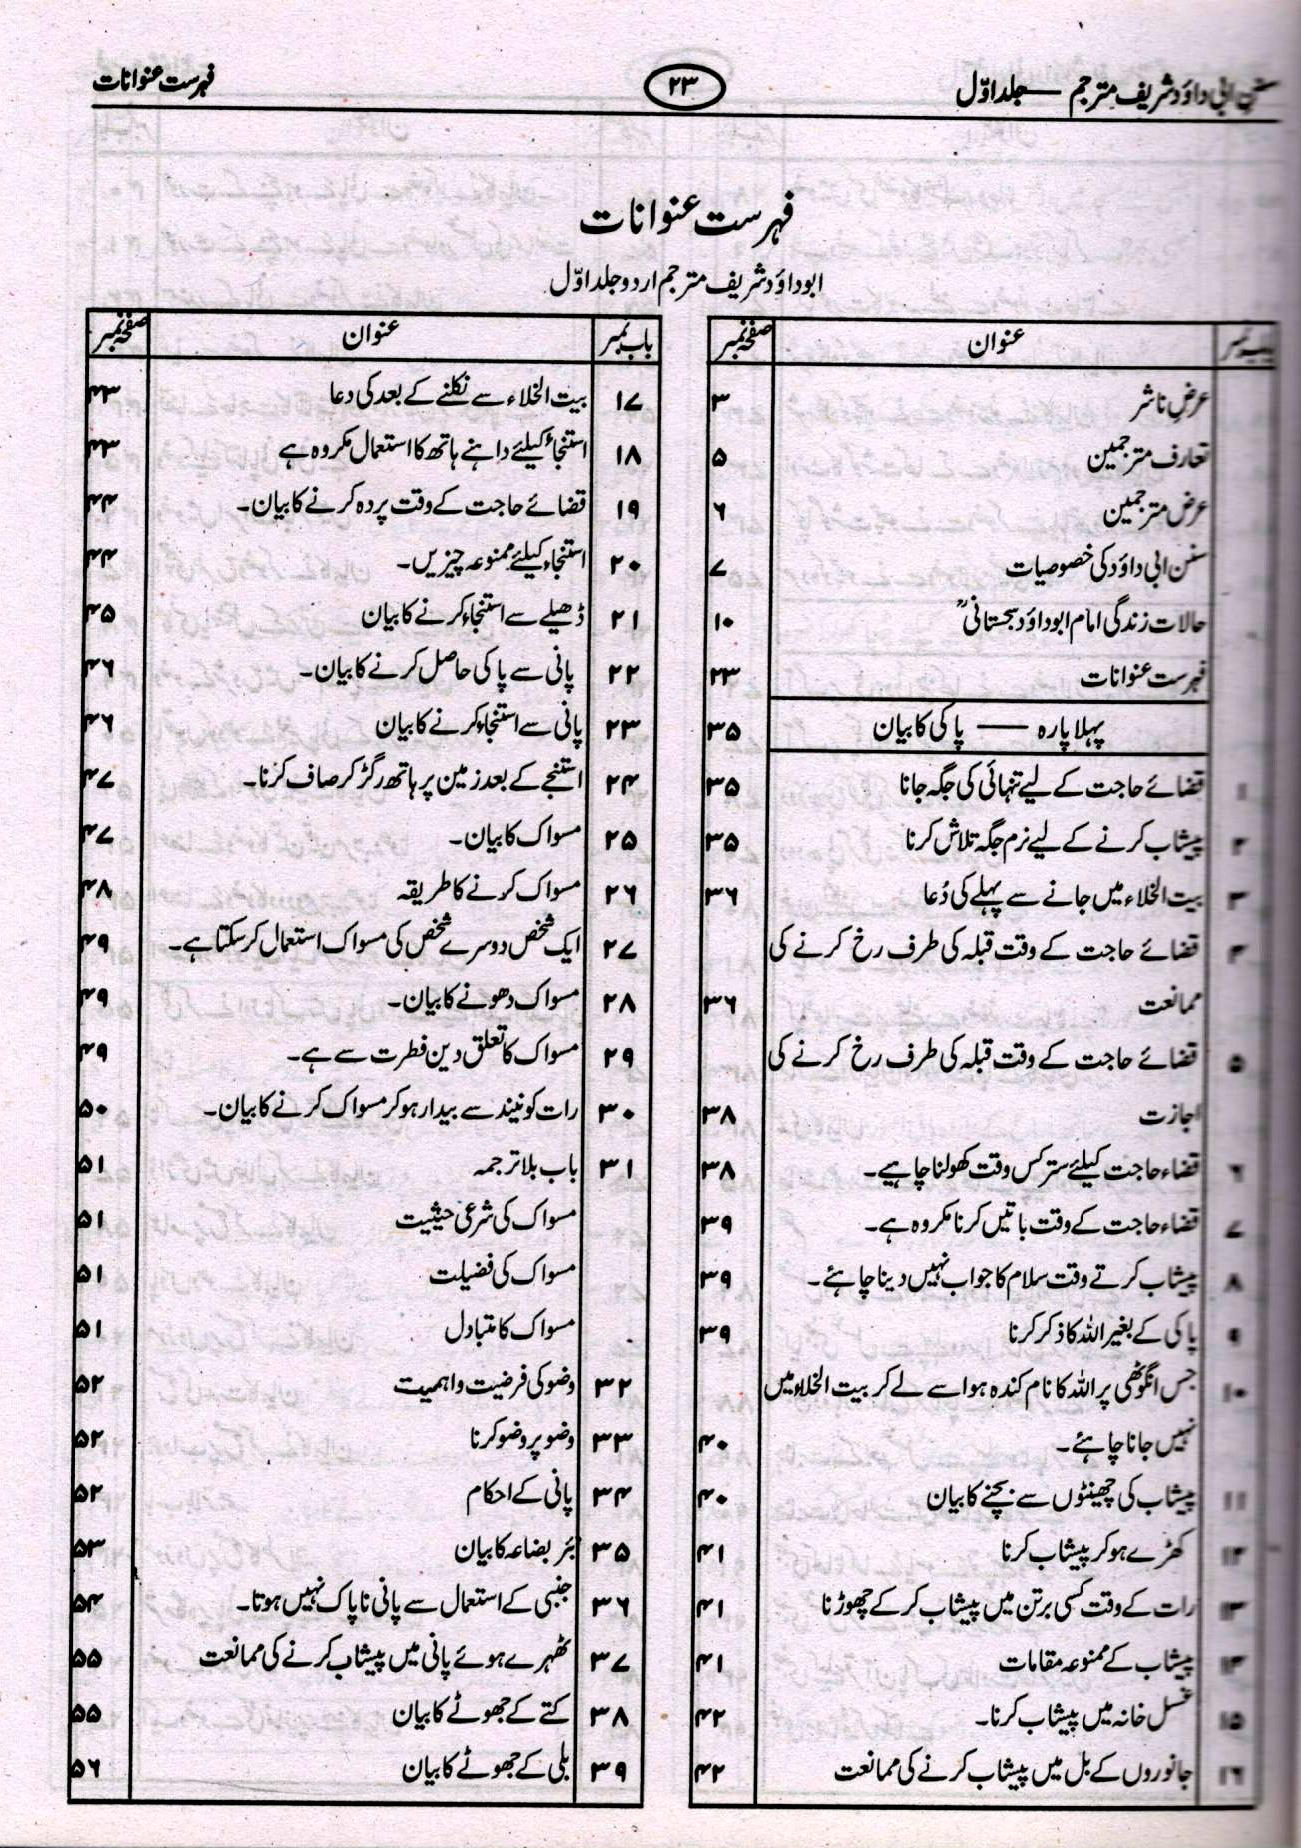 سنن ابی داؤد شریف مترجم — جلد اوّل ۲۳ فہرست عنوانات
فہرست عنوانات
ابوداؤد شریف مترجم اردو جلد اوّل
باب نمبر عنوان صفحہ نمبر
عرضِ ناشر ۳
تعارف مترجمین ۵
عرض مترجمین ۶
سنن ابی داؤد کی خصوصیات ۷
حالات زندگی امام ابوداؤد سجستانیؒ ۱۰
فہرست عنوانات ۲۳
پہلا پارہ — پاکی کا بیان ۳۵
۱ قضائے حاجت کے لیے تنہائی کی جگہ جانا ۳۵
۲ پیشاب کرنے کے لیے نرم جگہ تلاش کرنا ۳۵
۳ بیت الخلاء میں جانے سے پہلے کی دُعا ۳۶
۴ قضائے حاجت کے وقت قبلہ کی طرف رخ کرنے کی
ممانعت ۳۶
۵ قضائے حاجت کے وقت قبلہ کی طرف رخ کرنے کی
اجازت ۳۸
۶ قضاء حاجت کیلئے ستر کس وقت کھولنا چاہیے۔ ۳۸
۷ قضاء حاجت کے وقت باتیں کرنا مکروہ ہے۔ ۳۹
۸ پیشاب کرتے وقت سلام کا جواب نہیں دینا چاہئے۔ ۳۹
۹ پاکی کے بغیر اللہ کا ذکر کرنا ۳۹
۱۰ جس انگوٹھی پر اللہ کا نام کندہ ہو اسے لے کر بیت الخلاء میں
نہیں جانا چاہئے۔ ۴۰
۱۱ پیشاب کی چھینٹوں سے بچنے کا بیان ۴۰
۱۲ کھڑے ہو کر پیشاب کرنا ۴۱
۱۳ رات کے وقت کسی برتن میں پیشاب کر کے چھوڑنا ۴۱
۱۴ پیشاب کے ممنوعہ مقامات ۴۱
۱۵ غسل خانہ میں پیشاب کرنا۔ ۴۲
۱۶ جانوروں کے بل میں پیشاب کرنے کی ممانعت ۴۲
باب نمبر عنوان صفحہ نمبر
۱۷ بیت الخلاء سے نکلنے کے بعد کی دعا ۴۳
۱۸ استنجاء کیلئے داہنے ہاتھ کا استعمال مکروہ ہے ۴۳
۱۹ قضائے حاجت کے وقت پردہ کرنے کا بیان۔ ۴۴
۲۰ استنجاء کیلئے ممنوعہ چیزیں۔ ۴۴
۲۱ ڈھیلے سے استنجاء کرنے کا بیان ۴۵
۲۲ پانی سے پاکی حاصل کرنے کا بیان۔ ۴۶
۲۳ پانی سے استنجاء کرنے کا بیان ۴۶
۲۴ استنجے کے بعد زمین پر ہاتھ رگڑ کر صاف کرنا۔ ۴۷
۲۵ مسواک کا بیان۔ ۴۷
۲۶ مسواک کرنے کا طریقہ ۴۸
۲۷ ایک شخص دوسرے شخص کی مسواک استعمال کر سکتا ہے۔ ۴۹
۲۸ مسواک دھونے کا بیان۔ ۴۹
۲۹ مسواک کا تعلق دین فطرت سے ہے۔ ۴۹
۳۰ رات کو نیند سے بیدار ہو کر مسواک کرنے کا بیان۔ ۵۰
۳۱ باب بلا ترجمہ ۵۱
مسواک کی شرعی حیثیت ۵۱
مسواک کی فضیلت ۵۱
مسواک کا متبادل ۵۱
۳۲ وضو کی فرضیت و اہمیت ۵۲
۳۳ وضو پر وضو کرنا ۵۲
۳۴ پانی کے احکام ۵۲
۳۵ بئر بضاعہ کا بیان ۵۳
۳۶ جنبی کے استعمال سے پانی ناپاک نہیں ہوتا۔ ۵۴
۳۷ ٹھہرے ہوئے پانی میں پیشاب کرنے کی ممانعت ۵۵
۳۸ کتے کے جھوٹے کا بیان ۵۵
۳۹ بلی کے جھوٹے کا بیان ۵۶